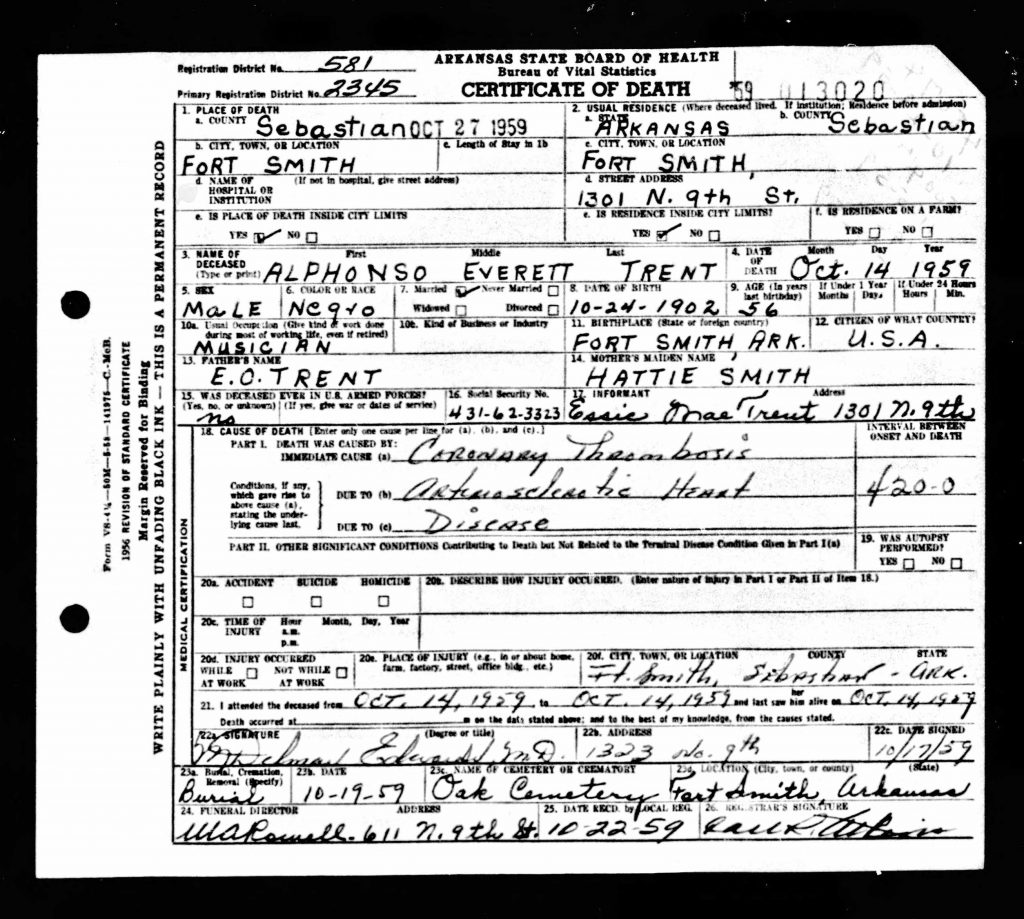 Registration District No. 581
ARKANSAS STATE BOARD OF HEALTH
Bureau of Vital Statistics
Primary Registration District No. 2345
CERTIFICATE OF DEATH
59 013020
1. PLACE OF DEATH
a. COUNTY Sebastian OCT 27 1959
2. USUAL RESIDENCE (Where deceased lived. If institution; Residence before admission)
a. STATE ARKANSAS b. COUNTY Sebastian
b. CITY, TOWN, OR LOCATION
FORT SMITH
c. Length of Stay in 1b
c. CITY, TOWN, OR LOCATION
FORT SMITH,
d. NAME OF HOSPITAL OR INSTITUTION (If not in hospital, give street address)
d. STREET ADDRESS
1301 N. 9th St.
e. IS PLACE OF DEATH INSIDE CITY LIMITS?
YES NO
e. IS RESIDENCE INSIDE CITY LIMITS?
YES NO
f. IS RESIDENCE ON A FARM?
YES NO
3. NAME OF DECEASED (Type or print)
First Middle Last
ALPHONSO EVERETT TRENT
4. DATE OF DEATH Month Day Year
Oct. 14 1959
5. SEX
MaLE
6. COLOR OR RACE
Negro
7. Married Never Married
Widowed Divorced
8. DATE OF BIRTH
10-24-1902
9. AGE (In years last birthday)
56
If Under 1 Year
Months Days
If Under 24 Hours
Hours Min.
10a. Usual Occupation (Give kind of work done during most of working life, even if retired)
MUSICIAN
10b. Kind of Business or Industry
11. BIRTHPLACE (State or foreign country)
FORT SMITH ARK.
12. CITIZEN OF WHAT COUNTRY?
U.S.A.
13. FATHER'S NAME
E.O. TRENT
14. MOTHER'S MAIDEN NAME
HATTIE SMITH
15. WAS DECEASED EVER IN U.S. ARMED FORCES?
(Yes, no, or unknown) (If yes, give war or dates of service)
no
16. Social Security No.
431-62-3323
17. INFORMANT Address
Essie Mae Trent 1301 N. 9th
18. CAUSE OF DEATH [Enter only one cause per line for (a), (b), and (c).]
INTERVAL BETWEEN ONSET AND DEATH
PART I. DEATH WAS CAUSED BY:
IMMEDIATE CAUSE (a) Coronary Thrombosis
Conditions, if any, which gave rise to above cause (a), stating the underlying cause last.
DUE TO (b) Arteriosclerotic Heart
420-0
DUE TO (c) Disease
PART II. OTHER SIGNIFICANT CONDITIONS Contributing to Death but Not Related to the Terminal Disease Condition Given in Part I(a)
19. WAS AUTOPSY PERFORMED?
YES NO
20a. ACCIDENT SUICIDE HOMICIDE
20b. DESCRIBE HOW INJURY OCCURRED. (Enter nature of injury in Part I or Part II of Item 18.)
20c. TIME OF INJURY Hour a.m. p.m. Month, Day, Year
20d. INJURY OCCURRED
WHILE AT WORK NOT WHILE AT WORK
20e. PLACE OF INJURY (e.g., in or about home, farm, factory, street, office bldg., etc.)
20f. CITY, TOWN, OR LOCATION COUNTY STATE
Ft. Smith, Sebastian - ARK.
21. I attended the deceased from OCT. 14, 1959, to OCT. 14, 1959 and last saw him her alive on OCT. 14, 1959
Death occurred at m on the date stated above; and to the best of my knowledge, from the causes stated.
22a. SIGNATURE (Degree or title)
Edwards M.D.
22b. ADDRESS
1323 No. 9th
22c. DATE SIGNED
10/17/59
23a. Burial, Cremation, Removal (Specify)
Burial
23b. DATE
10-19-59
23c. NAME OF CEMETERY OR CREMATORY
Oak Cemetery
23d. LOCATION (City, town, or county) (State)
Fort Smith, Arkansas
24. FUNERAL DIRECTOR ADDRESS
611 N. 9th St.
25. DATE RECD. by LOCAL REG.
10-22-59
26. REGISTRAR'S SIGNATURE
Form VS-4¼
1956 REVISION OF STANDARD CERTIFICATE
Margin Reserved for Binding
WRITE PLAINLY WITH UNFADING BLACK INK — THIS IS A PERMANENT RECORD
MEDICAL CERTIFICATION